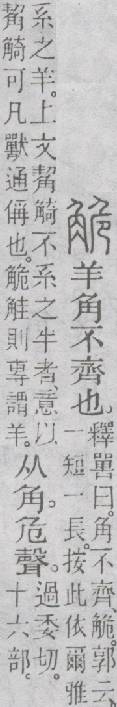 觤羊角不齊也。
釋嘼曰。角不齊、觤。郭云、
一短一長。按此依爾雅
系之羊。上文觢觭不系之牛者、意以
觢觭可凡獸通偁也。觤觟則專謂羊。
从角。危聲。
過委切。
十六部。